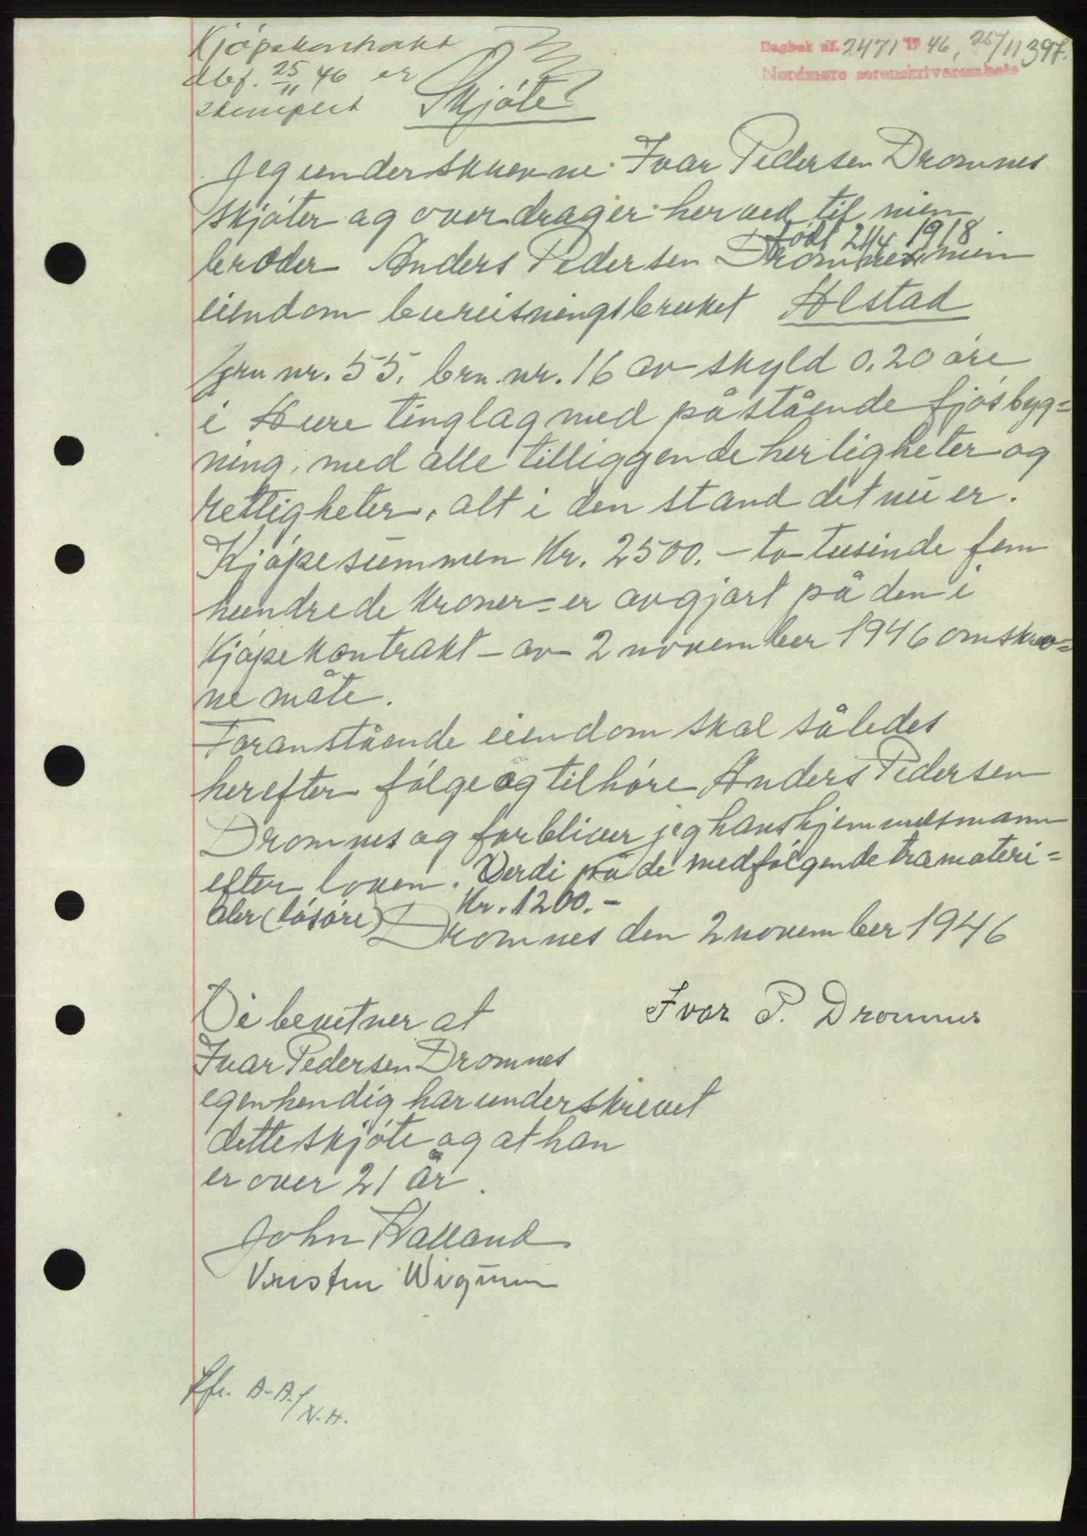 Kjøpekontrakt
dbf. 25/11 46 er
stemplet
Dagbok nr. 2471 1946, 25/11 397.
Nordmøre sorenskriverembete
Skjøte
Jeg underskrevne Ivar Pedersen Dromnes
skjøter og overdrager herved til min
født 21/4 1918
broder Anders Pedersen Dromnes min
eiendom bureisningsbruket Alstad
grn nr. 55, brn. nr. 16 av skyld 0.20 øre
i Aure tinglag med påstående fjøsbyg=
ning, med alle tilliggende herligheter og
rettigheter, alt i den stand det nu er.
Kjøpesummen Kr. 2500.- to tusinde fem
hundrede kroner= er avgjort på den i
Kjøpekontrakt - av 2 november 1946 omskrev=
ne måte.
Foranstående eiendom skal således
herefter følge og tilhøre Anders Pedersen
Dromnes og forbliver jeg hans hjemmelsmann
efter loven. Verdi på de medfølgende tramateri=
aler (løsøre) Kr. 1200.-
Dromnes den 2 november 1946
Ivar P. Dromnes
Vi bevitner at
Ivar Pedersen Dromnes
egenhendig har underskrevet
dette skjøte og at han
er over 21 år.
John Halland
Kristen Wigum
Kfr. A-A./
N.H.